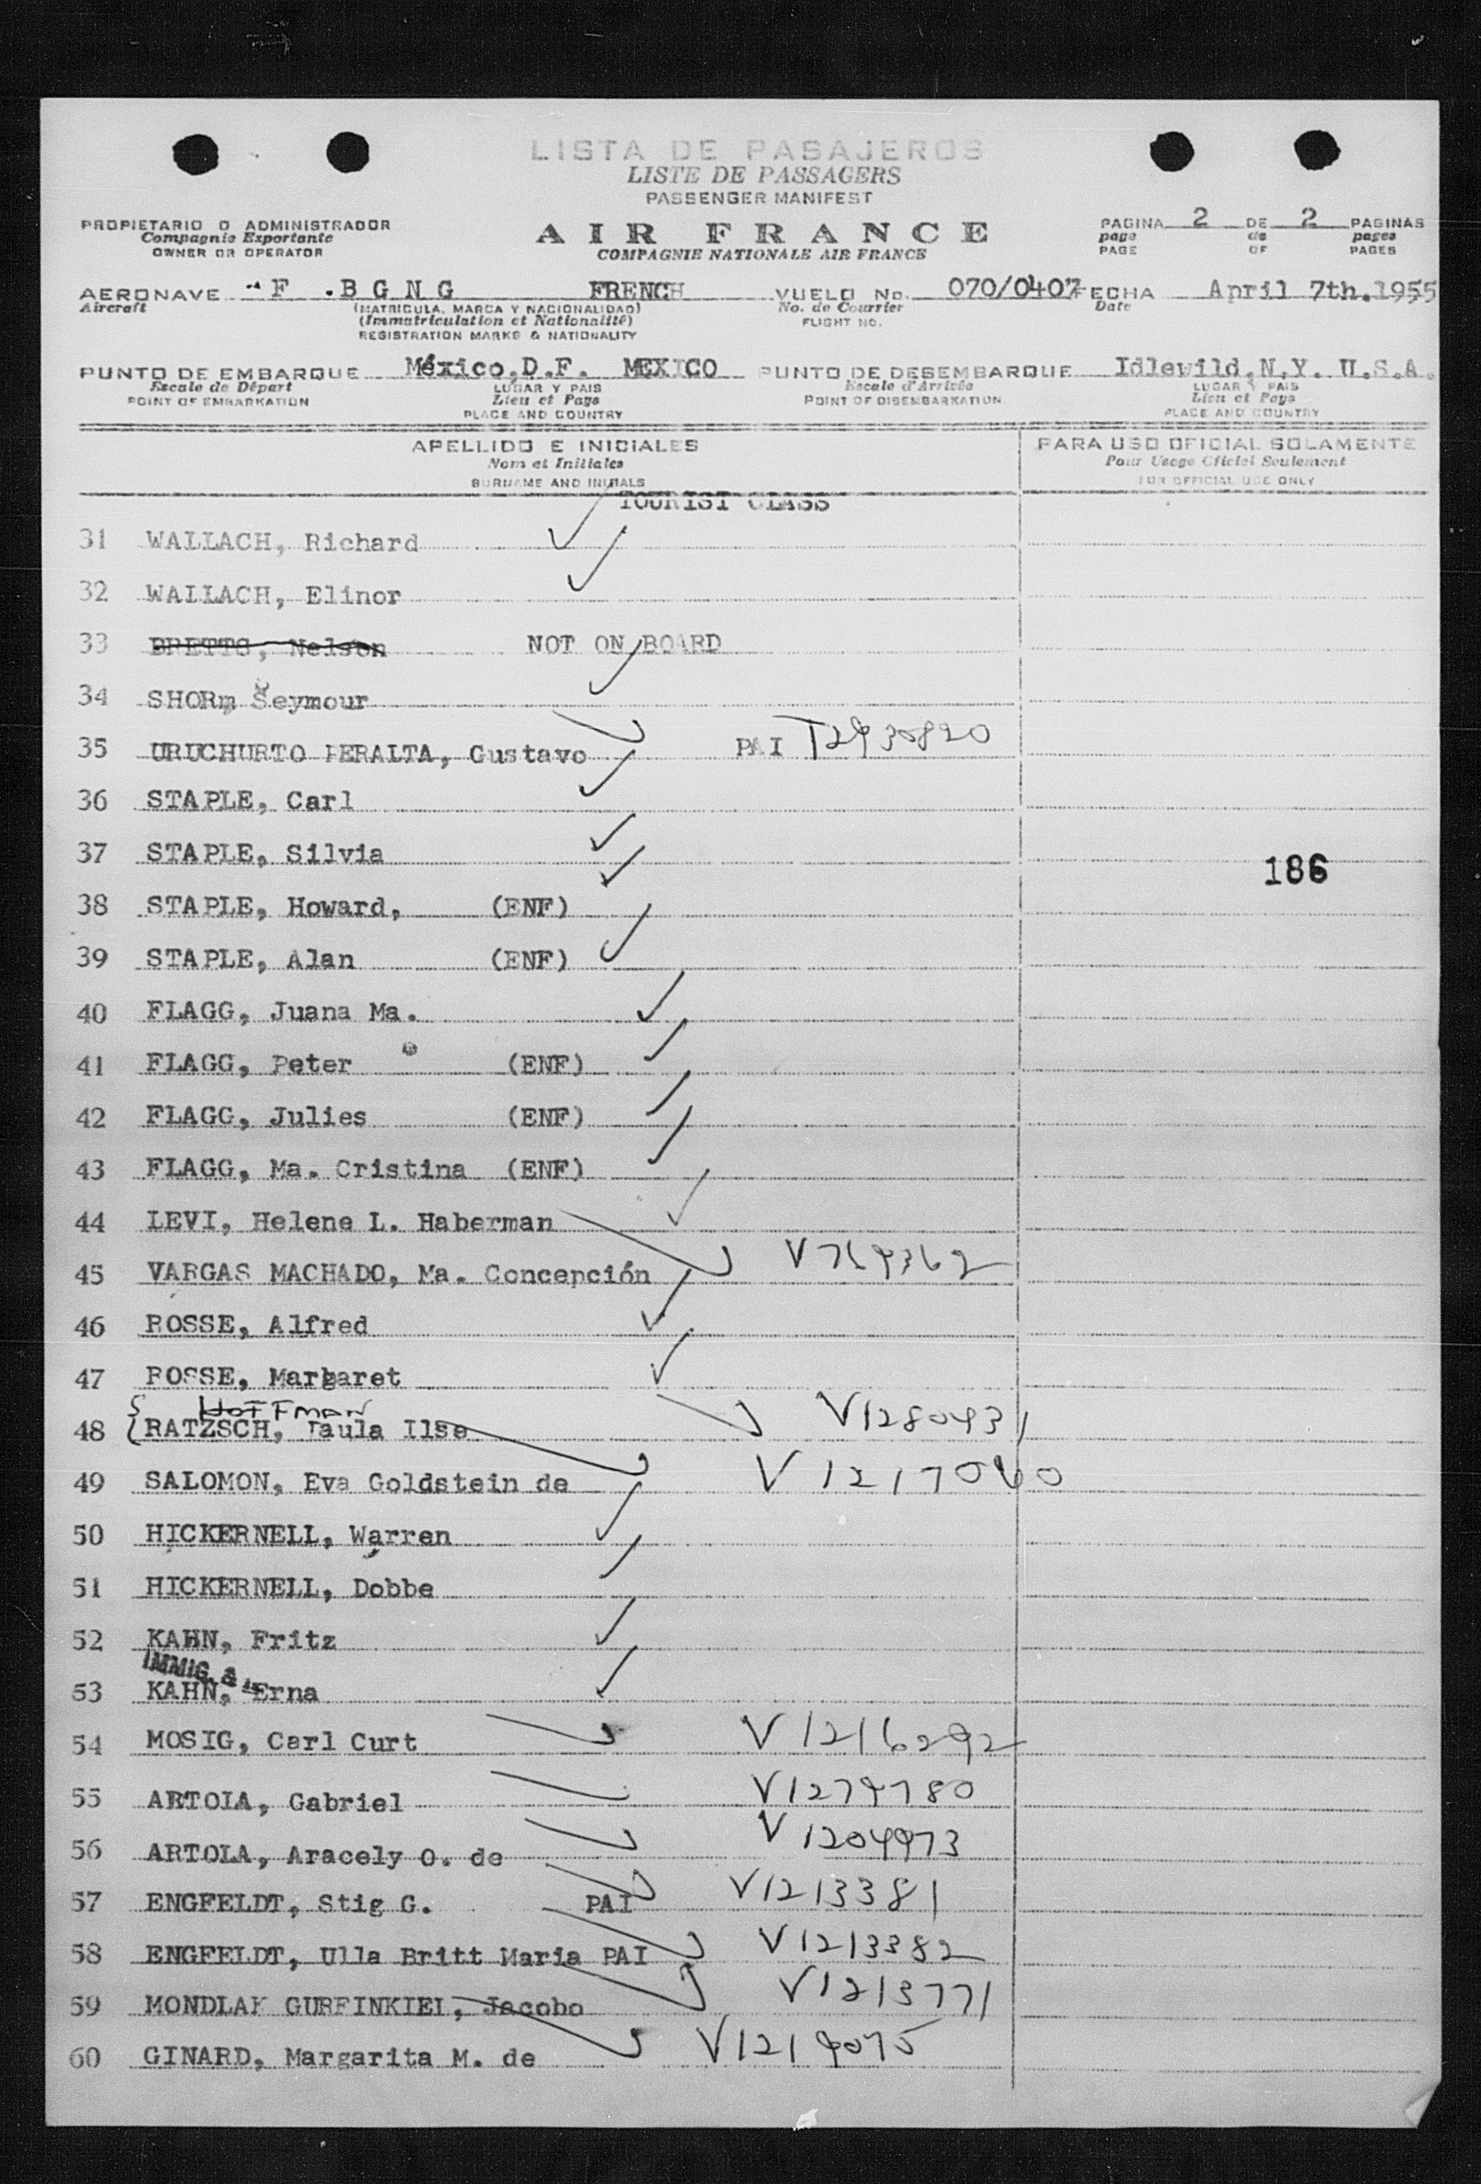 LISTA DE PASAJEROS
LISTE DE PASSAGERS
PASSENGER MANIFEST
PROPIETARIO O ADMINISTRADOR
Compagnie Exportante
OWNER OR OPERATOR
AIR FRANCE
COMPAGNIE NATIONALE AIR FRANCE
PAGINA 2 DE 2 PAGINAS
page de pages
PAGE OF PAGES
AERONAVE F .BGNG FRENCH VUELO No. 070/0407 FECHA April 7th.1955
Aircraft (MATRICULA, MARCA Y NACIONALIDAD) No. de Courrier Date
(Immatriculation et Nationalité) FLIGHT NO.
REGISTRATION MARKS & NATIONALITY
PUNTO DE EMBARQUE México,D.F. MEXICO PUNTO DE DESEMBARQUE Idlewild,N.Y. U.S.A.
Escale de Départ LUGAR Y PAIS Escale d'Arrivée LUGAR Y PAIS
POINT OF EMBARKATION Lieu et Pays POINT OF DISEMBARKATION Lieu et Pays
PLACE AND COUNTRY PLACE AND COUNTRY
APELLIDO E INICIALES PARA USO OFICIAL SOLAMENTE
Nom et Initiales Pour Usage Officiel Seulement
SURNAME AND INITIALS FOR OFFICIAL USE ONLY
TOURIST CLASS
31 WALLACH, Richard
32 WALLACH, Elinor
33 BRETTS, Nelson NOT ON BOARD
34 SHORm, Seymour
35 URUCHURTO PERALTA, Gustavo PAI T2930820
36 STAPLE, Carl
37 STAPLE, Silvia
186
38 STAPLE, Howard, (ENF)
39 STAPLE, Alan (ENF)
40 FLAGG, Juana Ma.
41 FLAGG, Peter (ENF)
42 FLAGG, Julies (ENF)
43 FLAGG, Ma. Cristina (ENF)
44 LEVI, Helene L. Haberman
45 VARGAS MACHADO, Ma. Concepción V769362
46 ROSSE, Alfred
47 ROSSE, Margaret
HOFFMAN
48 RATZSCH, Paula Ilse V1280431
49 SALOMON, Eva Goldstein de V1217060
50 HICKERNELL, Warren
51 HICKERNELL, Dobbe
52 KAHN, Fritz
IMMIG. &
53 KAHN, Erna
54 MOSIG, Carl Curt V1216292
55 ARTOLA, Gabriel V1279780
56 ARTOLA, Aracely O. de V1204973
57 ENGFELDT, Stig G. PAI V1213381
58 ENGFELDT, Ulla Britt Maria PAI V1213382
59 MONDLAK GURFINKIEL, Jacobo V1213771
60 GINARD, Margarita M. de V1219075